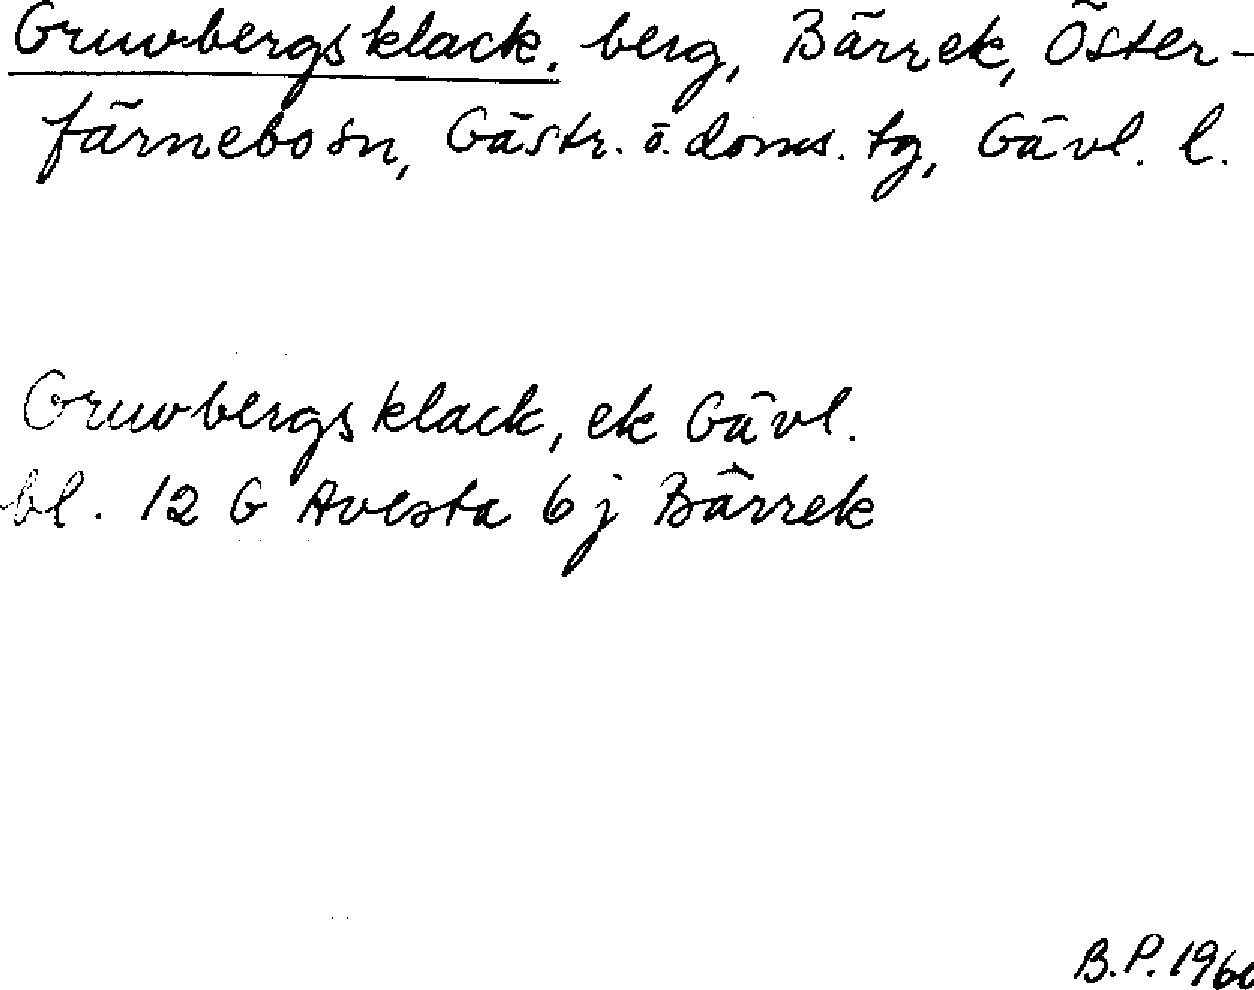 Gruvbergsklack, berg, Bärrek, Öster-
färnebo sn, Gästr. ö. doms. tg, Gävl. l.
Gruvbergsklack, ek Gävl.
bl. 12 G Avesta 6 j Bärrek
B.P. 196